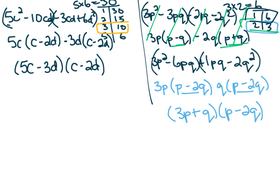 5×6=30
(5c²-10cd)(-3cd+6d²)
1 30
2 15
3 10
6
5c(c-2d)-3d(c-2d)
(5c-3d)(c-2d)
3×2=6
(3p²-3pq)(2pq-2q²)
1 6
2 3
3p(p-q) -2q(p+q)
(3p²-6pq)(1pq-2q²)
3p(p-2q) q(p-2q)
(3p+q)(p-2q)